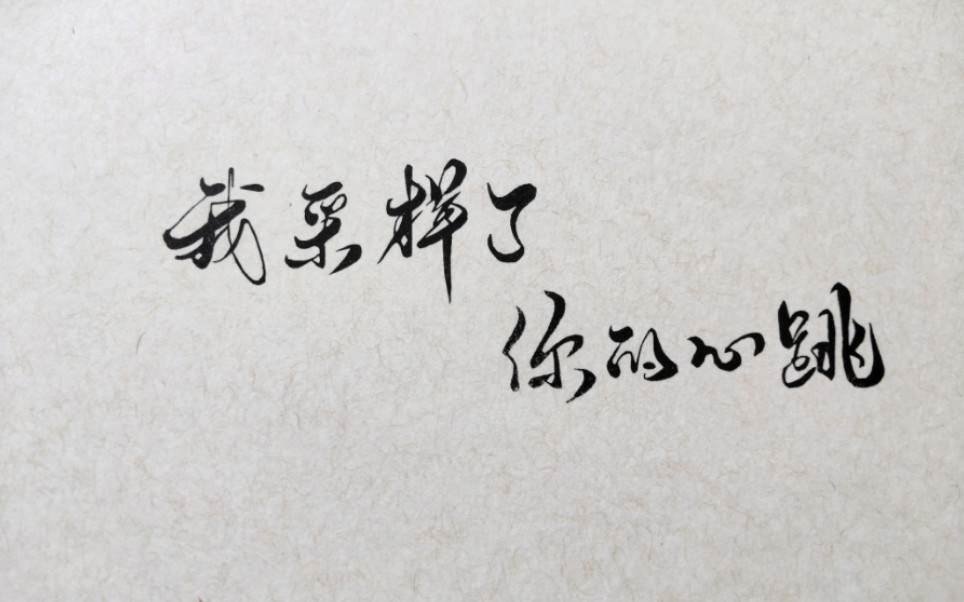 我采样了
你的心跳